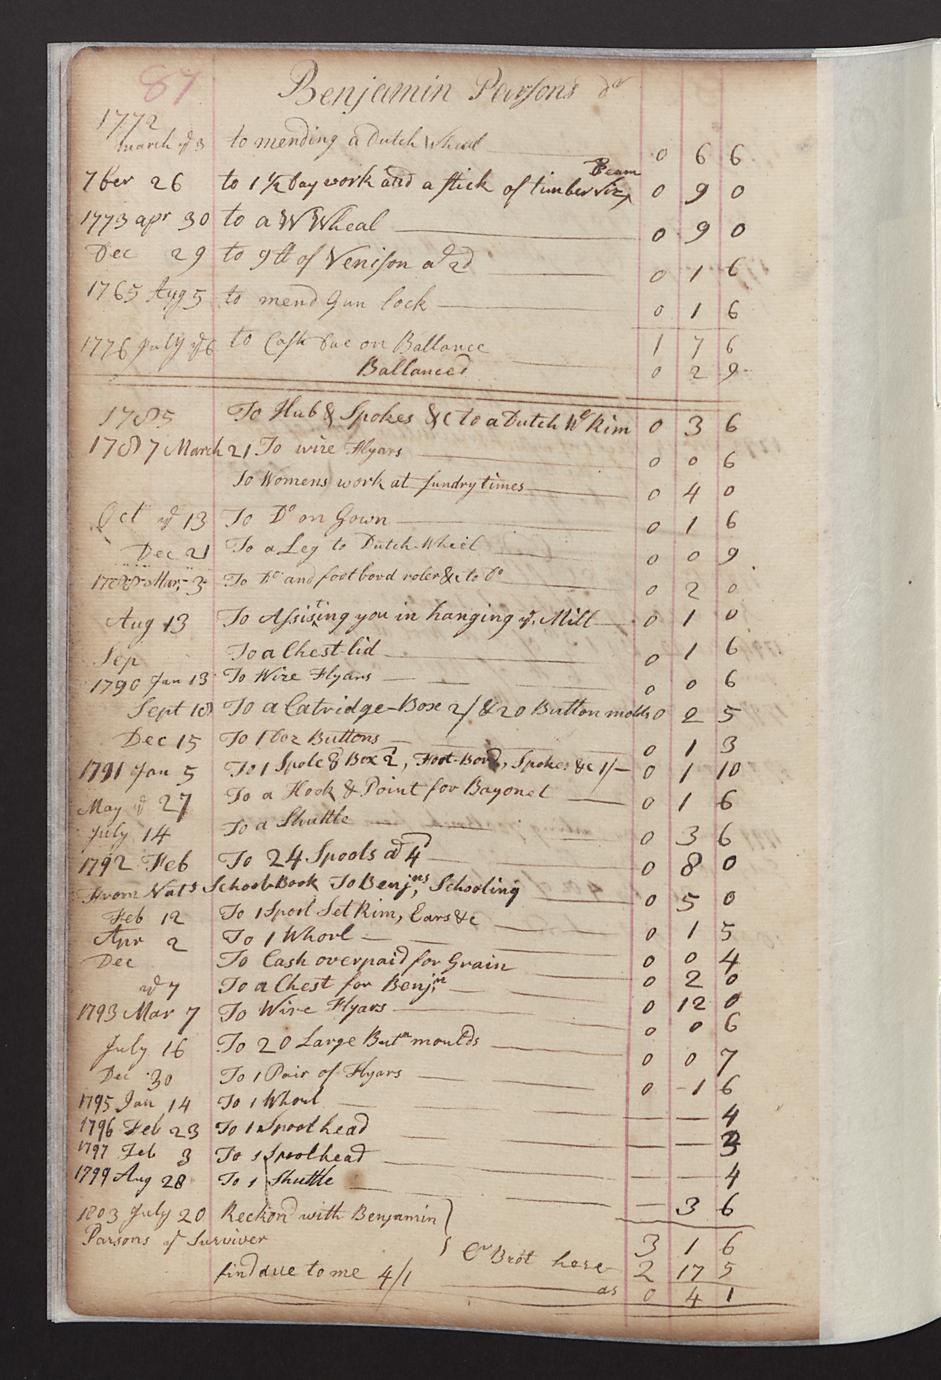 87
Benjamin Parsons Dr
1772
march ye 3 to mending a Dutch Wheal 0 6 6
7ber 26 to 1 1/2 Day work and a stick of timber viz Beam 0 9 0
1773 apr 30 to a W Wheal 0 9 0
Dec 29 to 9 lb of Venison a 2d 0 1 6
1765 Aug 5 to mend Gun lock 0 1 6
1776 July ye 6 to Cash due on Ballance 1 7 6
Ballanced 0 2 9
1785 To Hub & Spokes &c to a Dutch Wl Rim 0 3 6
1787 March 21 To wire Flyars 0 0 6
To Womens work at sundry times 0 4 0
Oct ye 13 To Do on Gown 0 1 6
Dec 21 To a Leg to Dutch Wheel 0 0 9
Mar 3 To Do and foot bord roler &c to Do 0 2 0
Aug 13 To Assisting you in hanging ye Mill 0 1 0
Sep To a Chest lid 0 1 6
1790 Jan 13 To Wire Flyars 0 0 6
Sept 18 To a Catridge-Box 2/ & 20 Button molds 0 2 5
Dec 15 To 1 doz Buttons 0 1 3
1791 Jan 5 To 1 Spole & Box 2, Foot-Bord, Spokes &c 1/– 0 1 10
May ye 27 To a Hook & Point for Bayonet 0 1 6
July 14 To a Shuttle 0 3 6
1792 Feb To 24 Spools a 4d 0 8 0
From Nats School-Book To Benjns Schooling 0 5 0
Feb 12 To 1 Spool Set Rim, Ears &c 0 1 5
Apr 2 To 1 Whorl 0 0 4
Dec To Cash overpaid for Grain 0 2 0
ye 7 To a Chest for Benjn 0 12 0
1793 Mar 7 To Wire Flyars 0 0 6
July 16 To 20 Large Butn moulds 0 0 7
Dec 30 To 1 Pair of Flyars 0 1 6
1795 Jan 14 To 1 Whorl — — 4
1796 Feb 23 To 1 Spool head — —
1797 Feb 3 To 1 Spool head — — 4
1799 Aug 28 To 1 Shuttle — 3 6
1803 July 20 Reckond with Benjamin
Parsons ye Surviver
Cr Brot here 3 1 6
2 17 5
find due to me 4/1 as 0 4 1